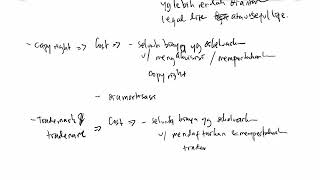 yg lebih rendah drantara
Legal life atau useful life.
- Copy right => Cost => - seluruh biaya yg dikeluark
u/ mengakuisisi / mempertahankan
copy right
- diamortisasi
- Trademark &
tradename => Cost => - seluruh biaya yg dikeluark
u/ mendaftarkan & mempertahank
trader